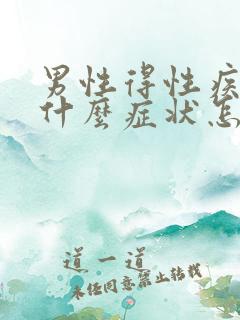 男性得性疾
什麼症状怎
道一道
未经同意禁止转载